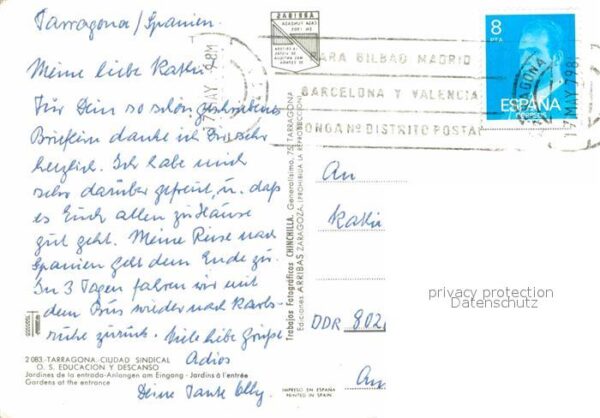 Tarragona / Spanien.
Meine liebe Katrin
Für Dein so schön geschriebenes
Brieflein danke ich Dir sehr
herzlich. Ich habe mich
sehr darüber gefreut, u. daß
es Euch allen zu Hause
gut geht. Meine Reise nach
Spanien geht dem Ende zu.
In 3 Tagen fahren wir mit
dem Bus wieder nach Karls-
ruhe zurück. Viele liebe Grüße
Adios
Deine Tante
2083-TARRAGONA-CIUDAD SINDICAL
O. S. EDUCACION Y DESCANSO
Jardines de la entrada-Anlangen am Eingang - Jardins à l'entrée
Gardens at the entrance
Trabajos Fotográficos CHINCHILLA. Generalísimo, 75. TARRAGONA
Ediciones ARRIBAS ZARAGOZA. (PROHIBIDA LA REPRODUCCION)
IMPRESO EN ESPAÑA
PRINTED IN SPAIN
PARA BILBAO MADRID
BARCELONA Y VALENCIA
PONGA Nº DISTRITO POSTAL
8
PTA
ESPAÑA
CORREOS
An
DDR 802
privacy protection
Datenschutz